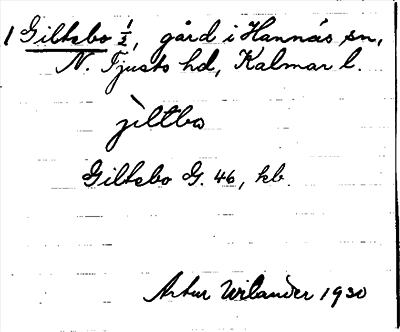 1 Giltsbo ½, gård i Hannäs sn,
N. Tjusts hd, Kalmar l.
jìltbo
Giltsbo G. 46, kb.
Artur Wilander 1930